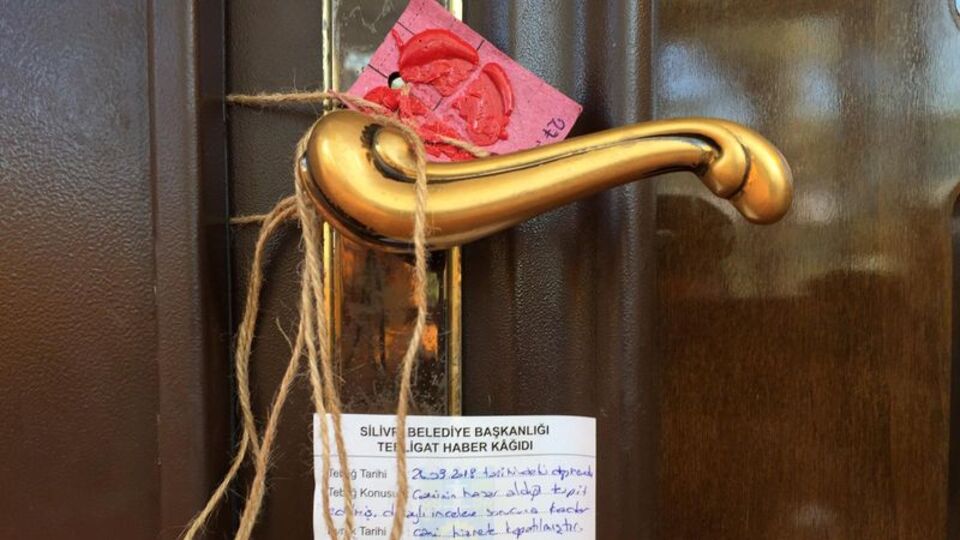 27.
SİLİVRİ BELEDİYE BAŞKANLIĞI
TEBLİGAT HABER KÂĞIDI
Tebliğ Tarihi 26.09.2019 tarihindeki depremde
Tebliğ Konusu Caminin hasar aldığı tespit
edilmiş, detaylı inceleme sonucuna kadar
Evrak Tarihi cami hizmete kapatılmıştır.